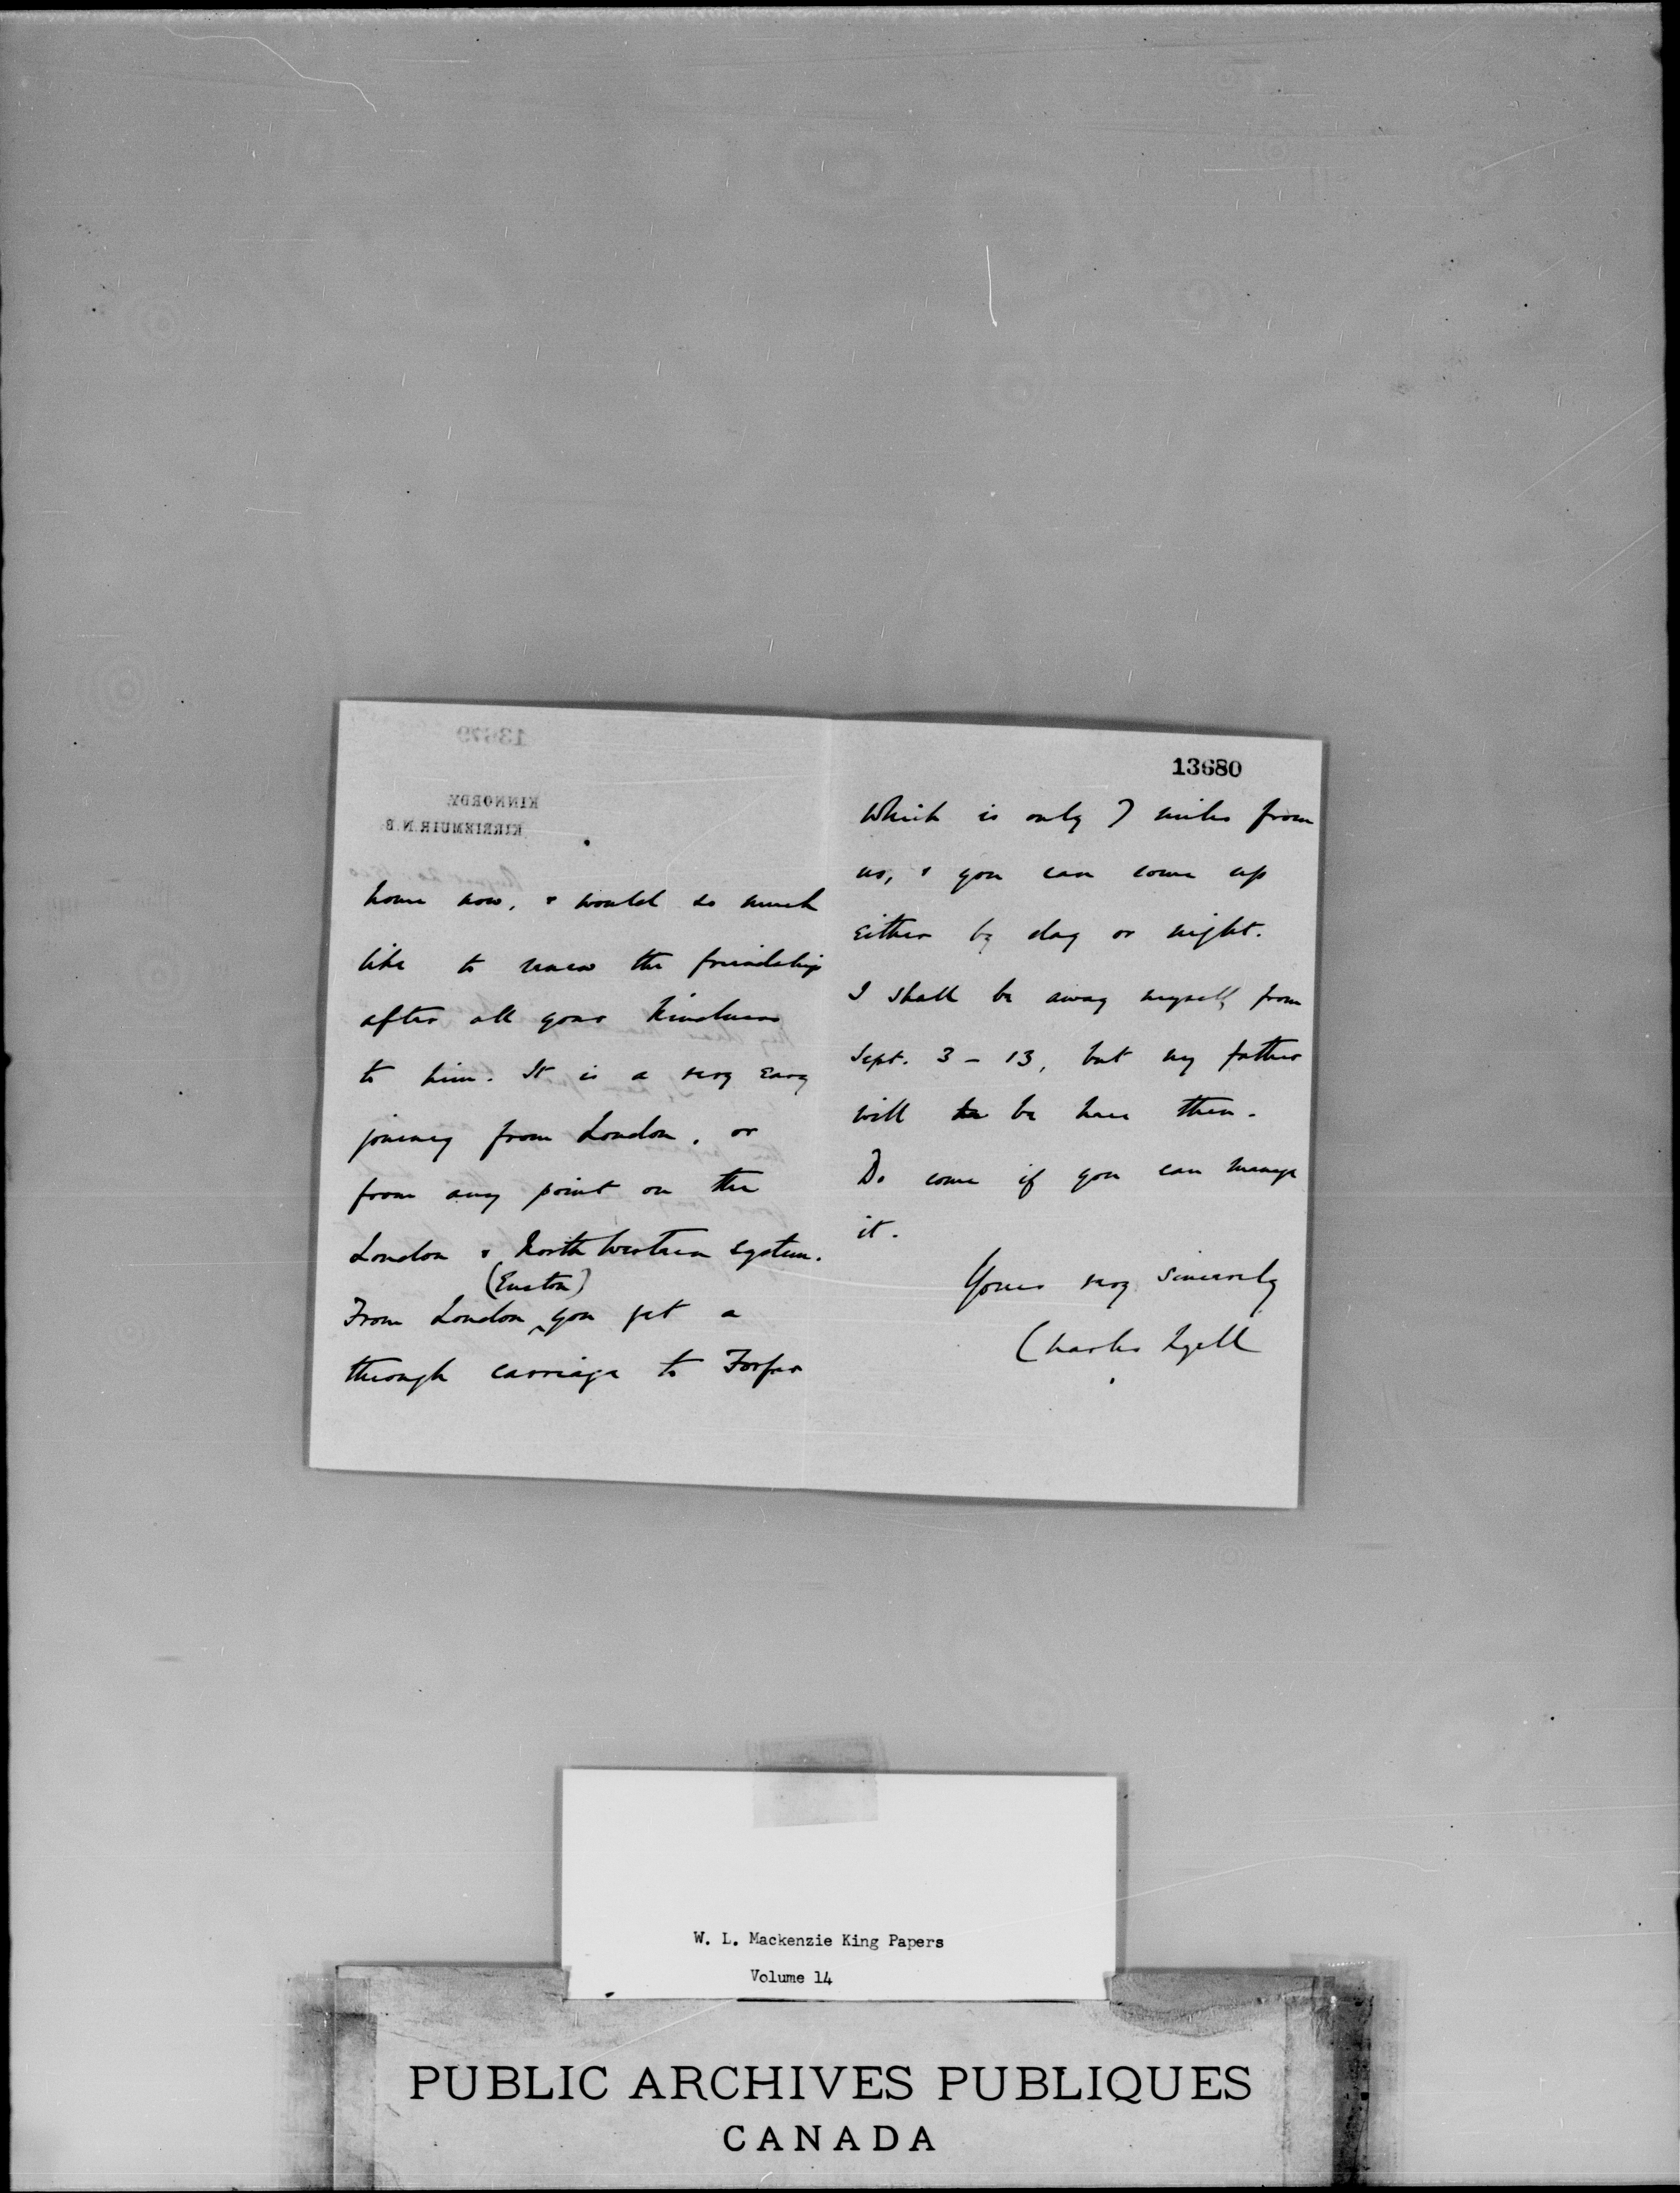 home now, & would so much
like to renew the friendship
after all your kindness
to him. It is a very easy
journey from London, or
from any point on the
London & North Western system.
(Euston)
From London you get a
through carriage to Forfar
13680
Which is only 7 miles from
us, & you can come up
Either by day or night.
I shall be away myself from
Sept. 3 - 13, but my father
will be here then.
Do come if you can manage
it.
Yours very sincerely
Charles Lyell
13679
KINNORDY.
KIRRIEMUIR. N.B.
W. L. Mackenzie King Papers
Volume 14
PUBLIC ARCHIVES PUBLIQUES
CANADA